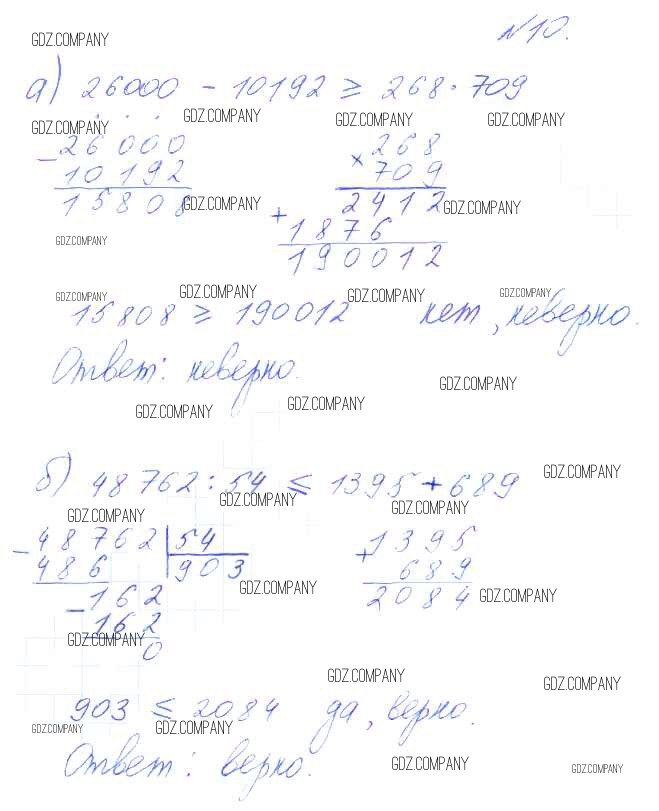 №10.
GDZ.COMPANY
а) 26000 - 10192 ≥ 268 · 709
GDZ.COMPANY GDZ.COMPANY GDZ.COMPANY GDZ.COMPANY
- 26000 × 268
10192 709
15808 GDZ.COMPANY 2412 GDZ.COMPANY
+
GDZ.COMPANY 1876
190012
GDZ.COMPANY GDZ.COMPANY GDZ.COMPANY GDZ.COMPANY
15808 ≥ 190012 нет, неверно.
Ответ: неверно.
GDZ.COMPANY GDZ.COMPANY GDZ.COMPANY
б) 48762 : 54 ≤ 1395 + 689 GDZ.COMPANY
GDZ.COMPANY GDZ.COMPANY GDZ.COMPANY
- 48762 54 + 1395
486 903 689
- 162 GDZ.COMPANY 2084 GDZ.COMPANY
162 GDZ.COMPANY
0
GDZ.COMPANY GDZ.COMPANY
903 ≤ 2084 да, верно.
GDZ.COMPANY GDZ.COMPANY
Ответ: верно. GDZ.COMPANY GDZ.COMPANY